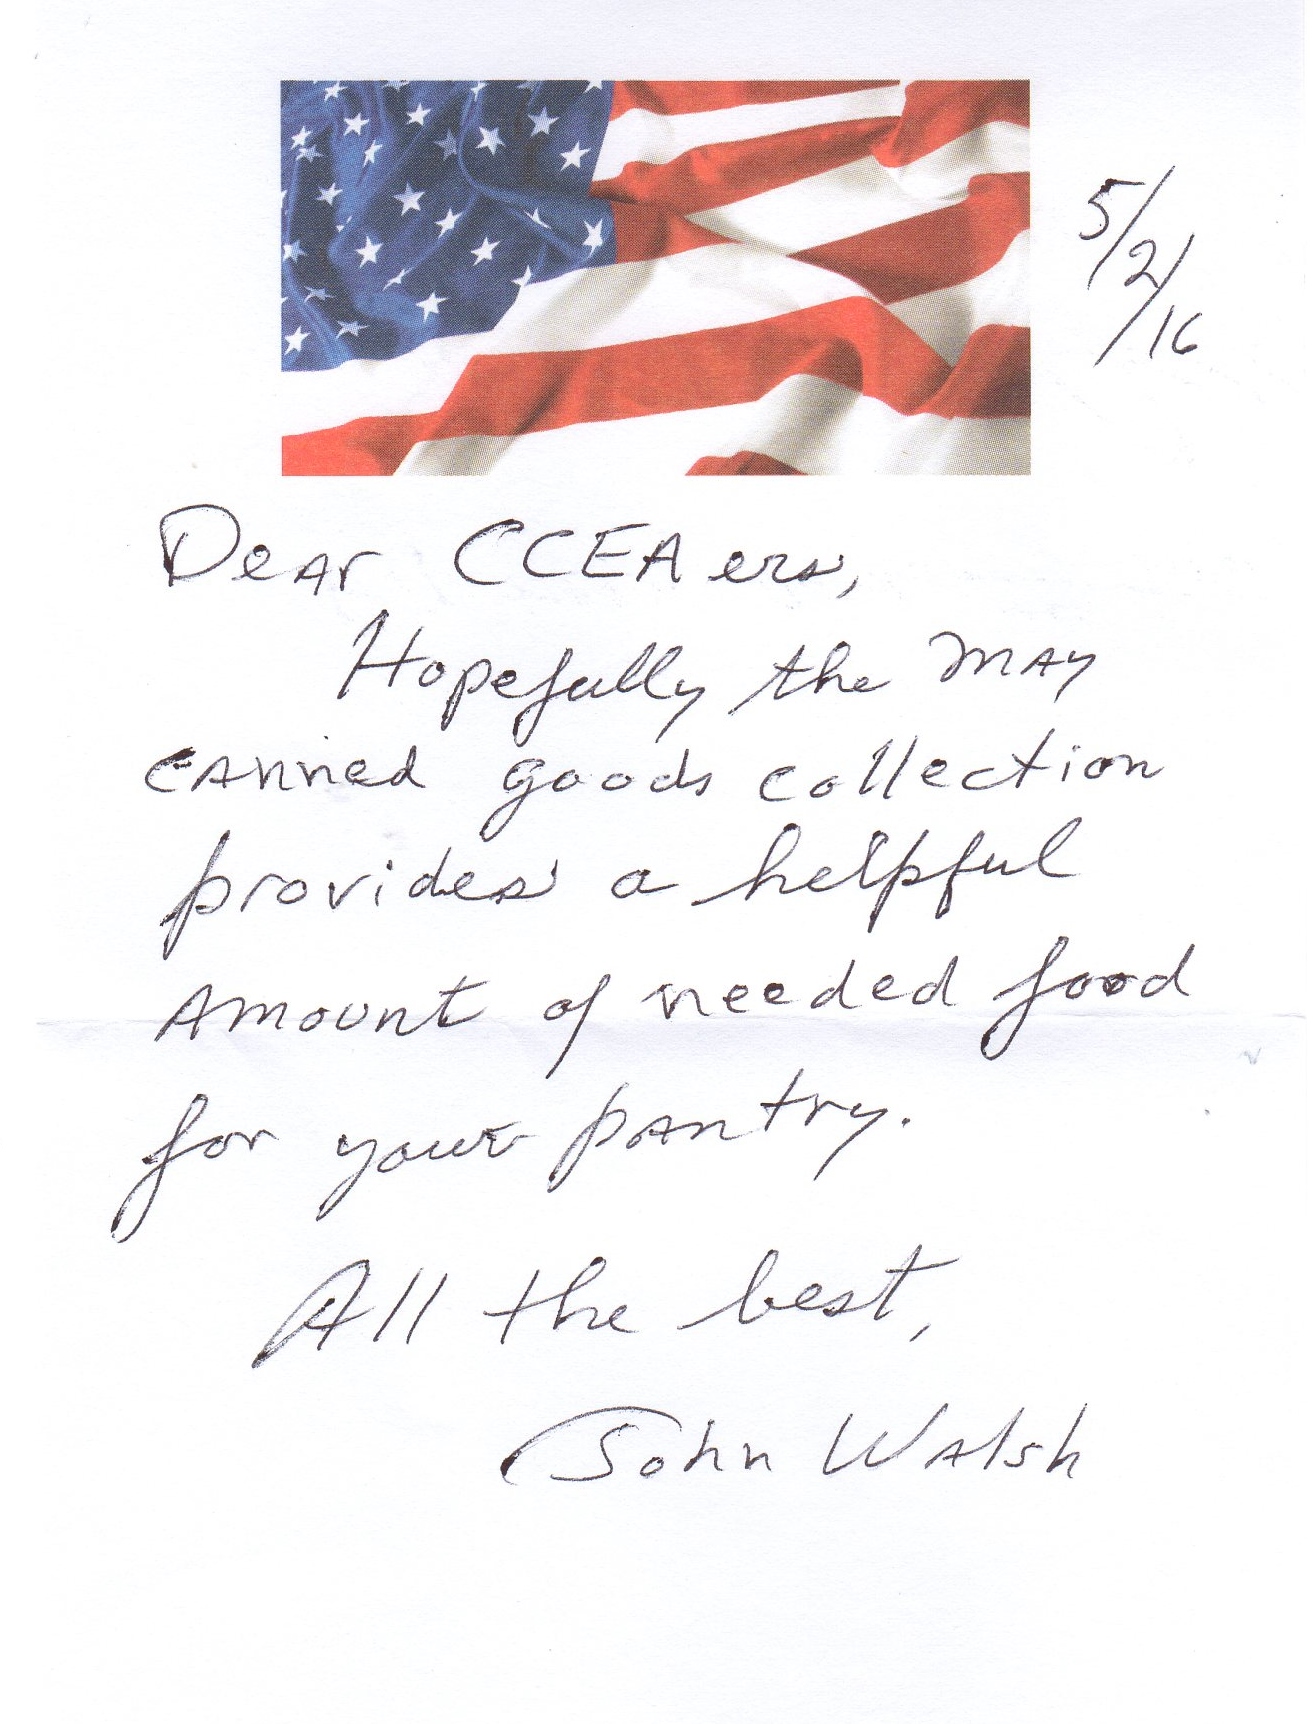 5/2/16
Dear CCEAers,
Hopefully the May
canned goods collection
provides a helpful
amount of needed food
for your pantry.
All the best,
John Walsh